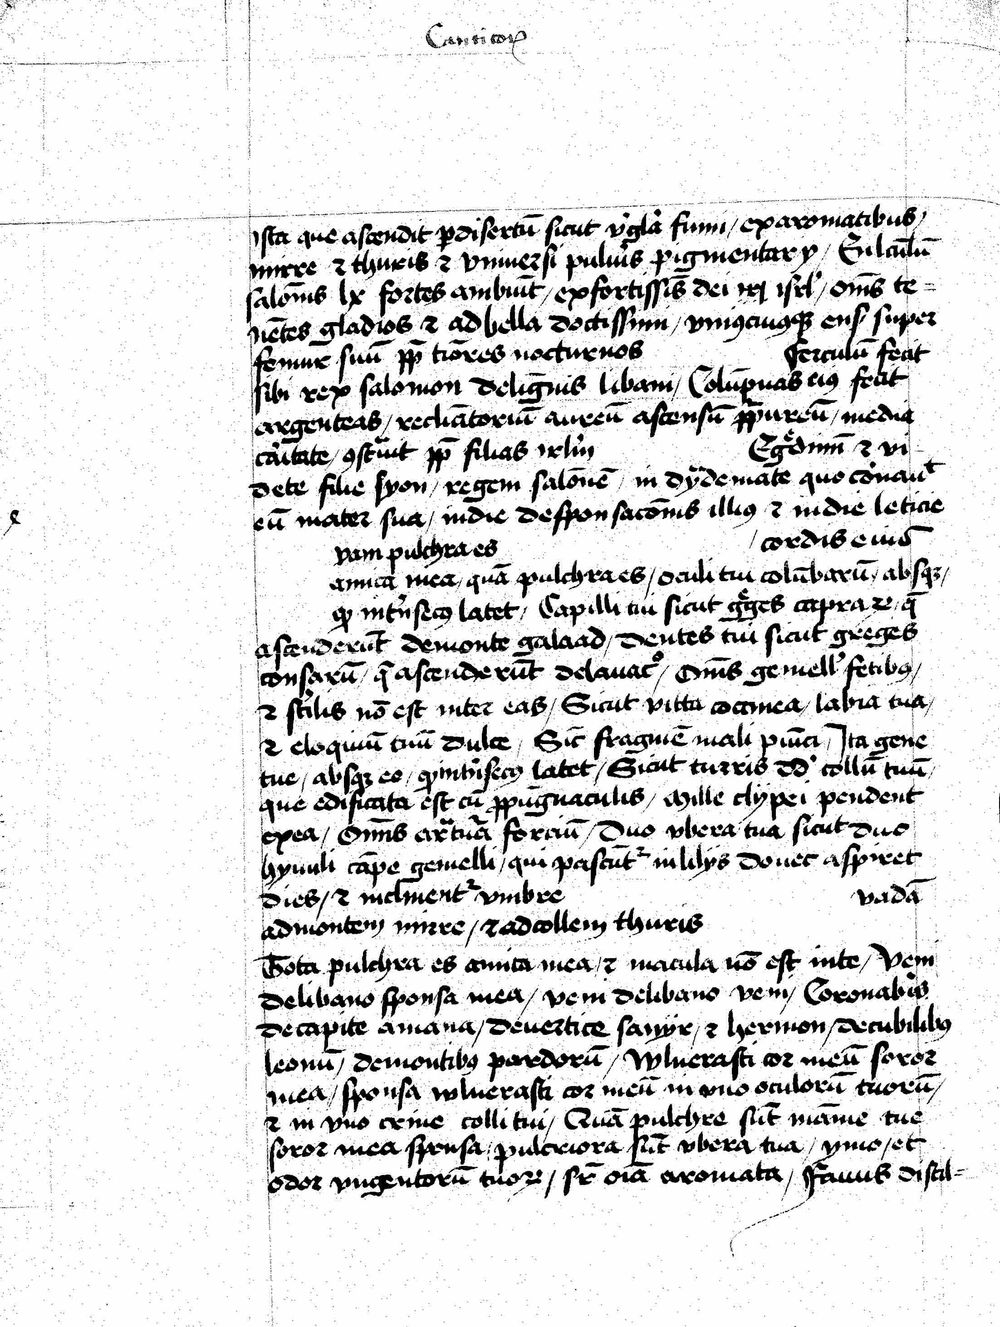 Canticor
Ista que ascendit p disertū sicut v̓gla̓ fumi / ex aromatibus /
mirre & thuris & vniuersi puluīs pigmentarÿ / En̄ lectulū
salonīs lx fortes ambiūt / ex fortissīs dei isrl̓ / om̄s te=
nētes gladios & ad bella doctissimi / vniꝯcuiusqꝫ ensꝭ super
femur suū pp̄ timōres nocturnos ferculū fecit
sibi rex salomon de lignīs libani / Colūpnas eiꝰ fecit
argenteas / reclīatoriū aureū ascensū pp̄ureū / media
ca̓itate / ꝯstrāuit pp̄ filias irlm̄ Eg̓dimī & vi
dete filie syon / regem salonē / in dyademate quo coronauͭ
eū mater sua / in die desponsacōnis illiꝰ & in die leticie
/ cordis eius
vam pulchra es
amica mea / quā pulchra es / oculi tui colūbarū / absqꝫ /
qꝫ int̓nseco latet / Capilli tui sicut g̓ges caprarꝝ / q̄
ascenderūt de monte galaad / Dentes tui sicut greges
tonsarū / q̄ ascenderūt de lauacͦ / Om̄s gemell̓ fetibꝰ /
& st̓ilis nō est inter eas / Sicut vitta coccinea / labia tua /
& eloquiū tuū dulce / Sic̄ fragmē mali pūici / Ita gene
tue / absqꝫ eo / qꝫ int̓nseco latet / Sicut turris dd̓ collū tuū /
que edificata est cū ppūgnaculis / Mille clypei pendent
ex ea / Om̄is armatura forciū / Duo vbera tua sicut duo
hynuli cāpe gemelli / qui pascūtᷣ in lilÿs donec aspiret
dies / & inclinentᷣ vmbre vadā
ad montem mirre / & ad collem thuris
Tota pulchra es amica mea / & macula nō est in te / Veni
de libano sponsa mea / veni de libano veni / Coronab̓is
de capite amana / de vertice sanyr / & hermon / de cubilibꝰ
leonū / de montibꝰ pardorū / Wlnerasti cor meū soror
mea / sponsa wlnerasti cor meū in vno oculorū tuorū /
& in vno crine colli tui / Quā pulchre sūt māme tue
soror mea sponsa / pulcriora sūt vbera tua / ymo / et
odor vngentorū tuorꝝ / sr̄ oīa aromata / Fauus distil=